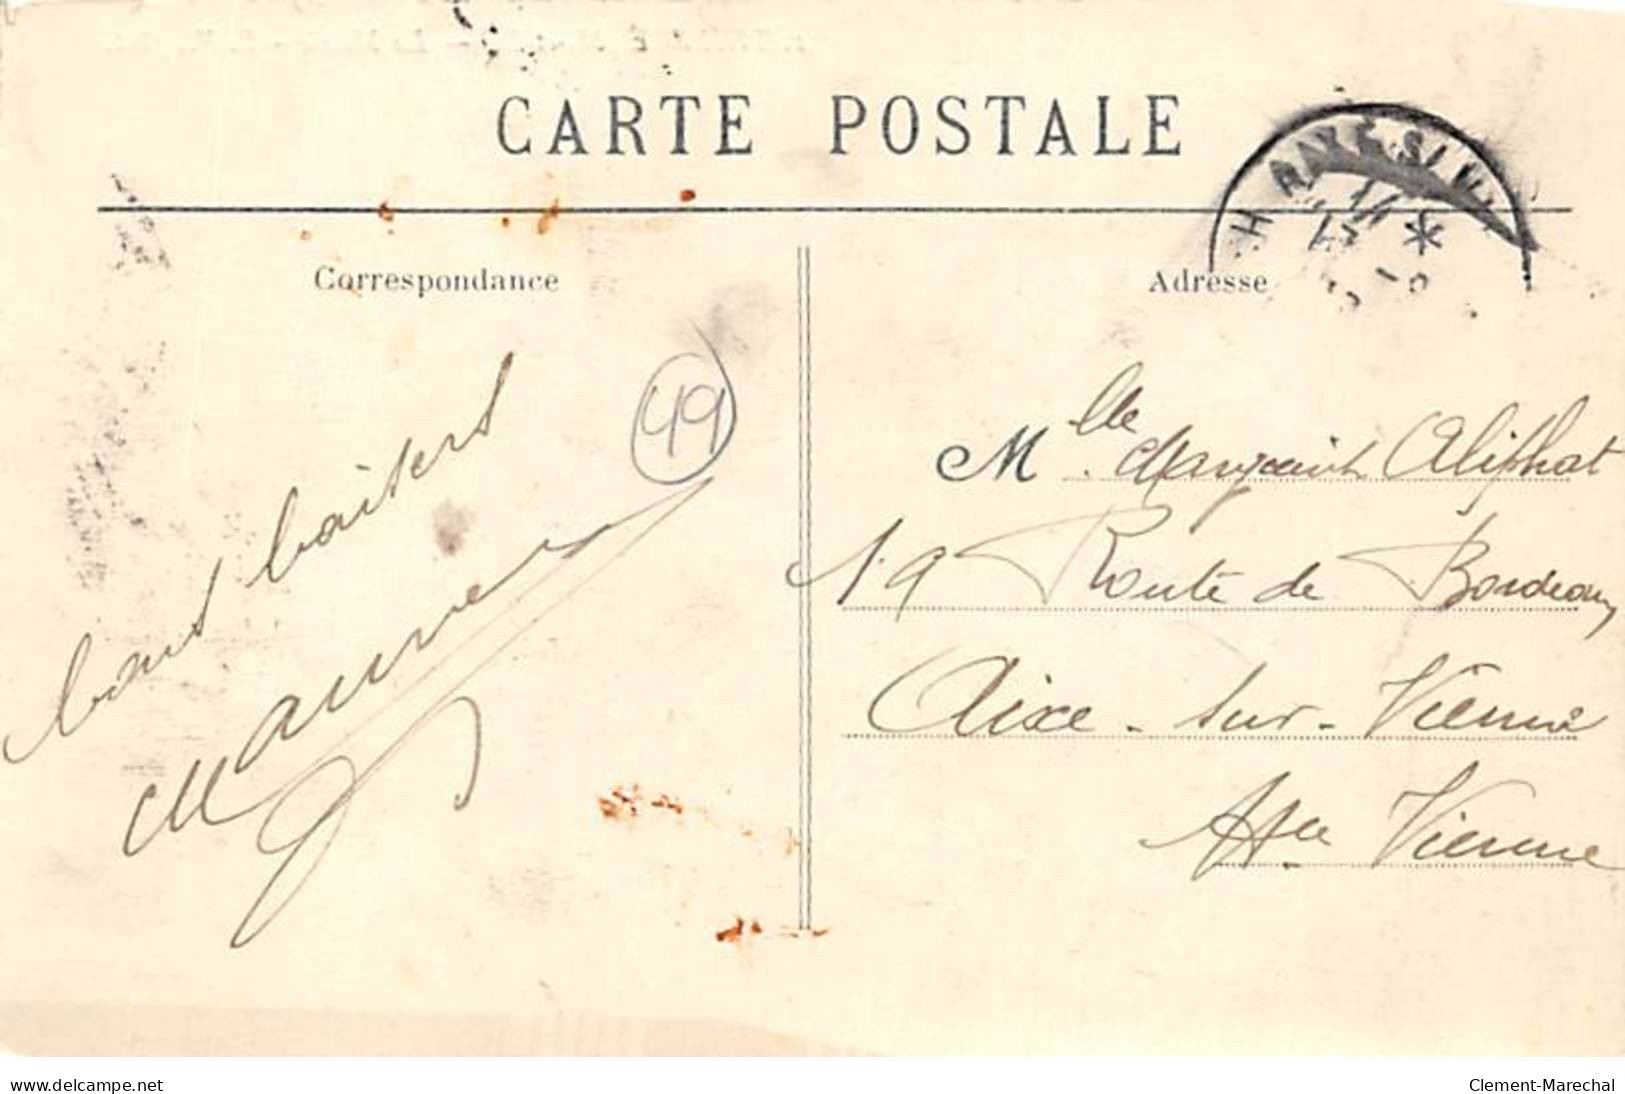 CARTE POSTALE
Correspondance
Adresse
49
bons baisers
Mlle Marguerite Aliphat
19 Route de Bordeaux
Aixe-sur-Vienne
Hte Vienne
www.delcampe.net
Clement-Marechal